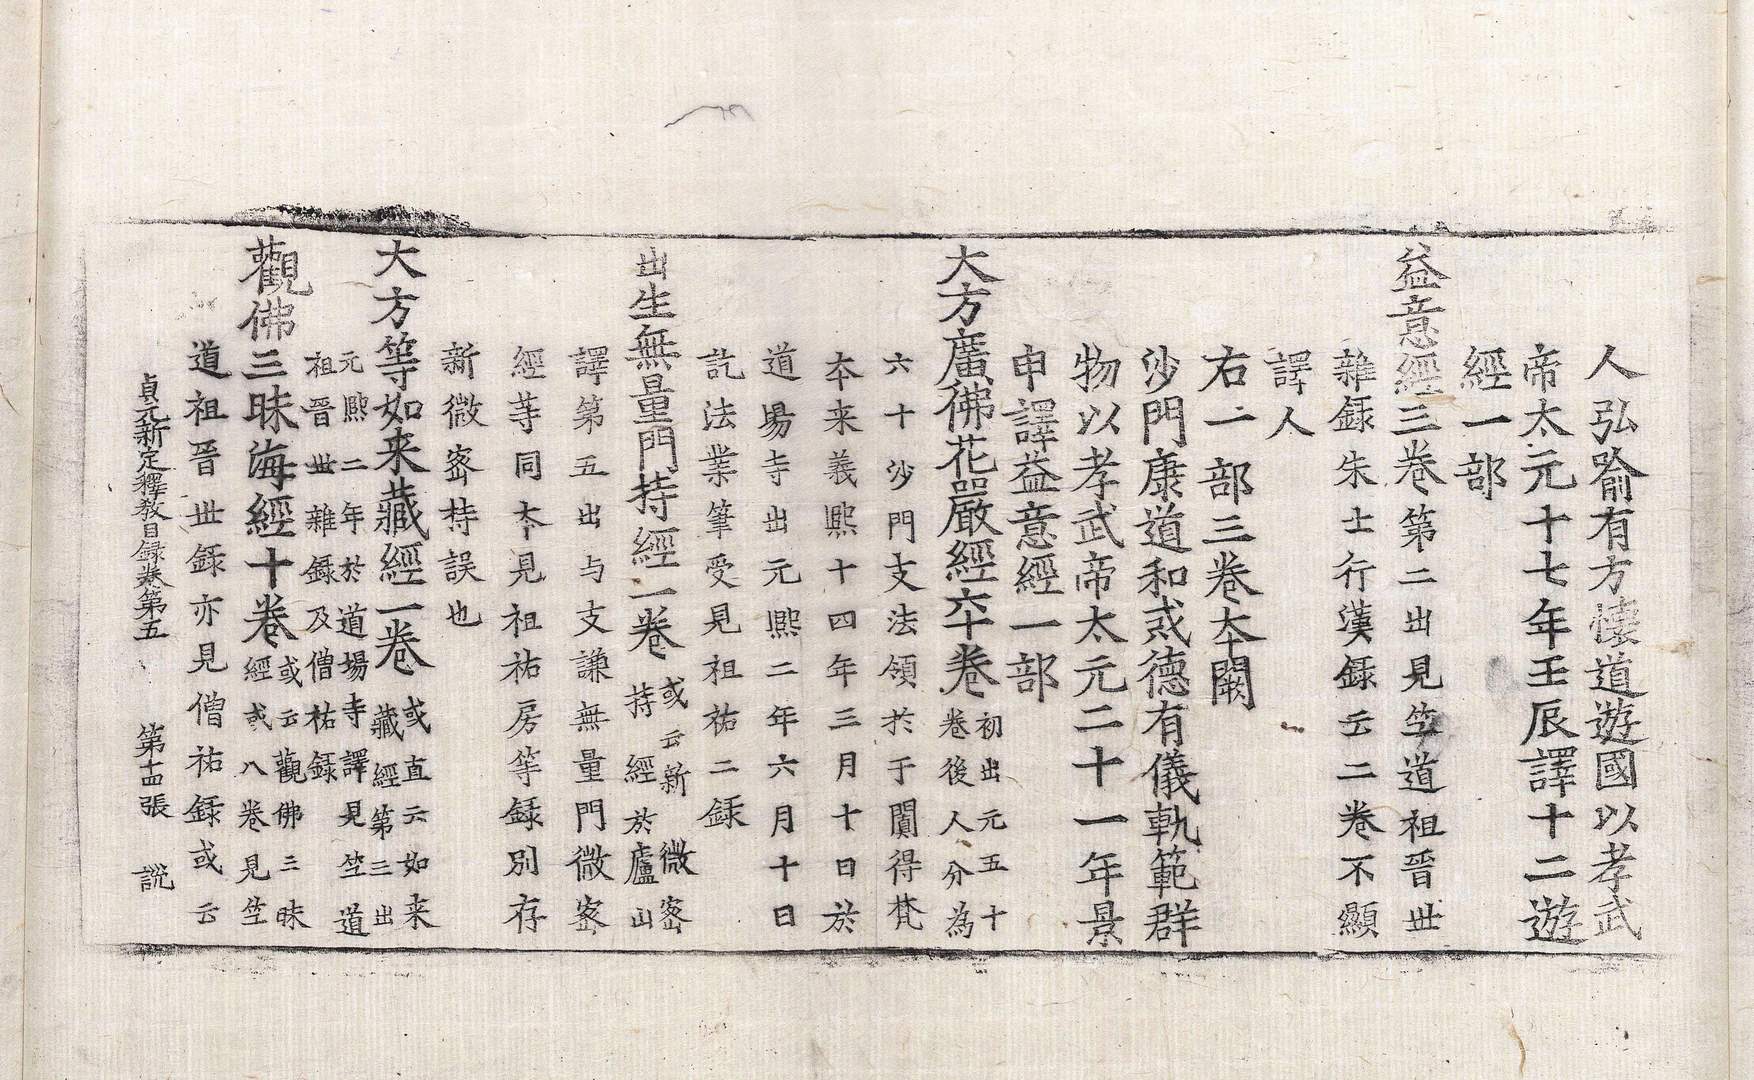 人弘喻有方懷道遊國以孝武
帝太元十七年壬辰譯十二遊
經一部
益意經三卷第二出見竺道祖晉丗
雜録朱士行漢録云二卷不顯
譯人
右一部三卷夲闕
沙門康道和或德有儀軌範群
物以孝武帝太元二十一年景
申譯益意經一部
大方廣佛花嚴經六十卷初出元五十
卷後人分為
六十沙門支法領於于闐得梵
夲来義熙十四年三月十日於
道場寺出元熙二年六月十日
訖法業筆受見祖祐二録
出生無量門持經一卷或云新微密
持經於廬山
譯第五出与支謙無量門微密
經等同夲見祖祐房等録別存
新微密持誤也
大方等如来藏經一卷或直云如来
藏經第三出
元熙二年於道場寺譯見竺道
祖晉丗雜録及僧祐録
觀佛三昧海經十卷或云觀佛三昧
經或八卷見竺
道祖晉丗録亦見僧祐録或云
貞元新定釋教目録卷第五 第十四張 說